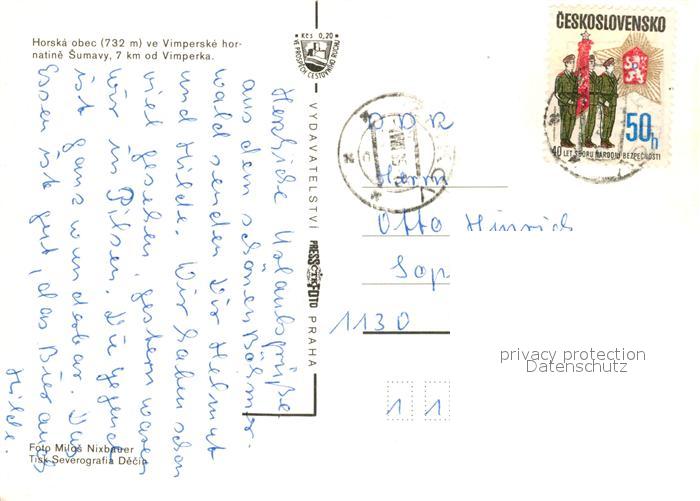 Horská obec (732 m) ve Vimperské hor-
natině Šumavy, 7 km od Vimperka.
Herzliche Urlaubsgrüße
aus dem schönen Böhmer-
wald senden Dir Helmut
und Hilde. Wir haben schon
viel gesehen, gestern waren
wir in Pilsen. Die Gegend
ist ganz wunderbar. Das
Essen ist gut, das Bier auch
Hilde.
Foto Miloš Nixbauer
Tisk Severografia Děčín
Kčs 0,20
VE PROSPĚCH CESTOVNÍHO RUCHU
VYDAVATELSTVÍ PRESSFOTO PRAHA
ČESKOSLOVENSKO
50h
40 LET SBORU NÁRODNÍ BEZPEČNOSTI
DDR
Herrn
Otto Hinrich
Sop
1130
1 1
privacy protection
Datenschutz